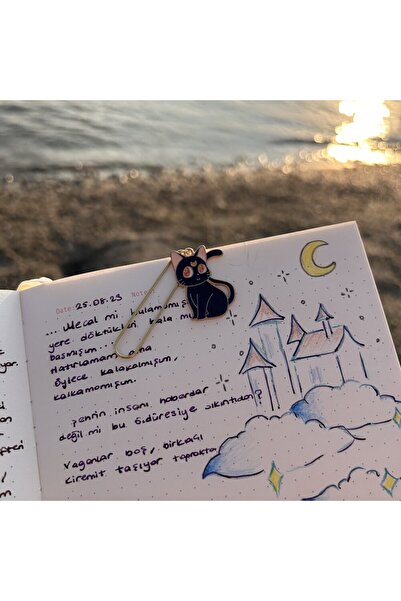 Date: 25.08.23 Note
... Mecal mi bulamamış
yere döktükleri kala m
basmışım...
Hatırlamam ona
öylece kalakalmışım,
kalkamamışım.
Şehrin insanı haberdar
değil mi bu
sıkıntıdan?
Vagonlar boş, birkaçı
kiremit taşıyor toprakta